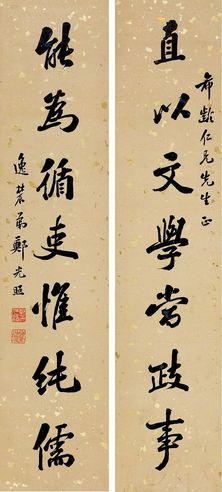 希齡仁兄先生正
直以文學當政事
能為循吏惟純儒
逸弟鄭